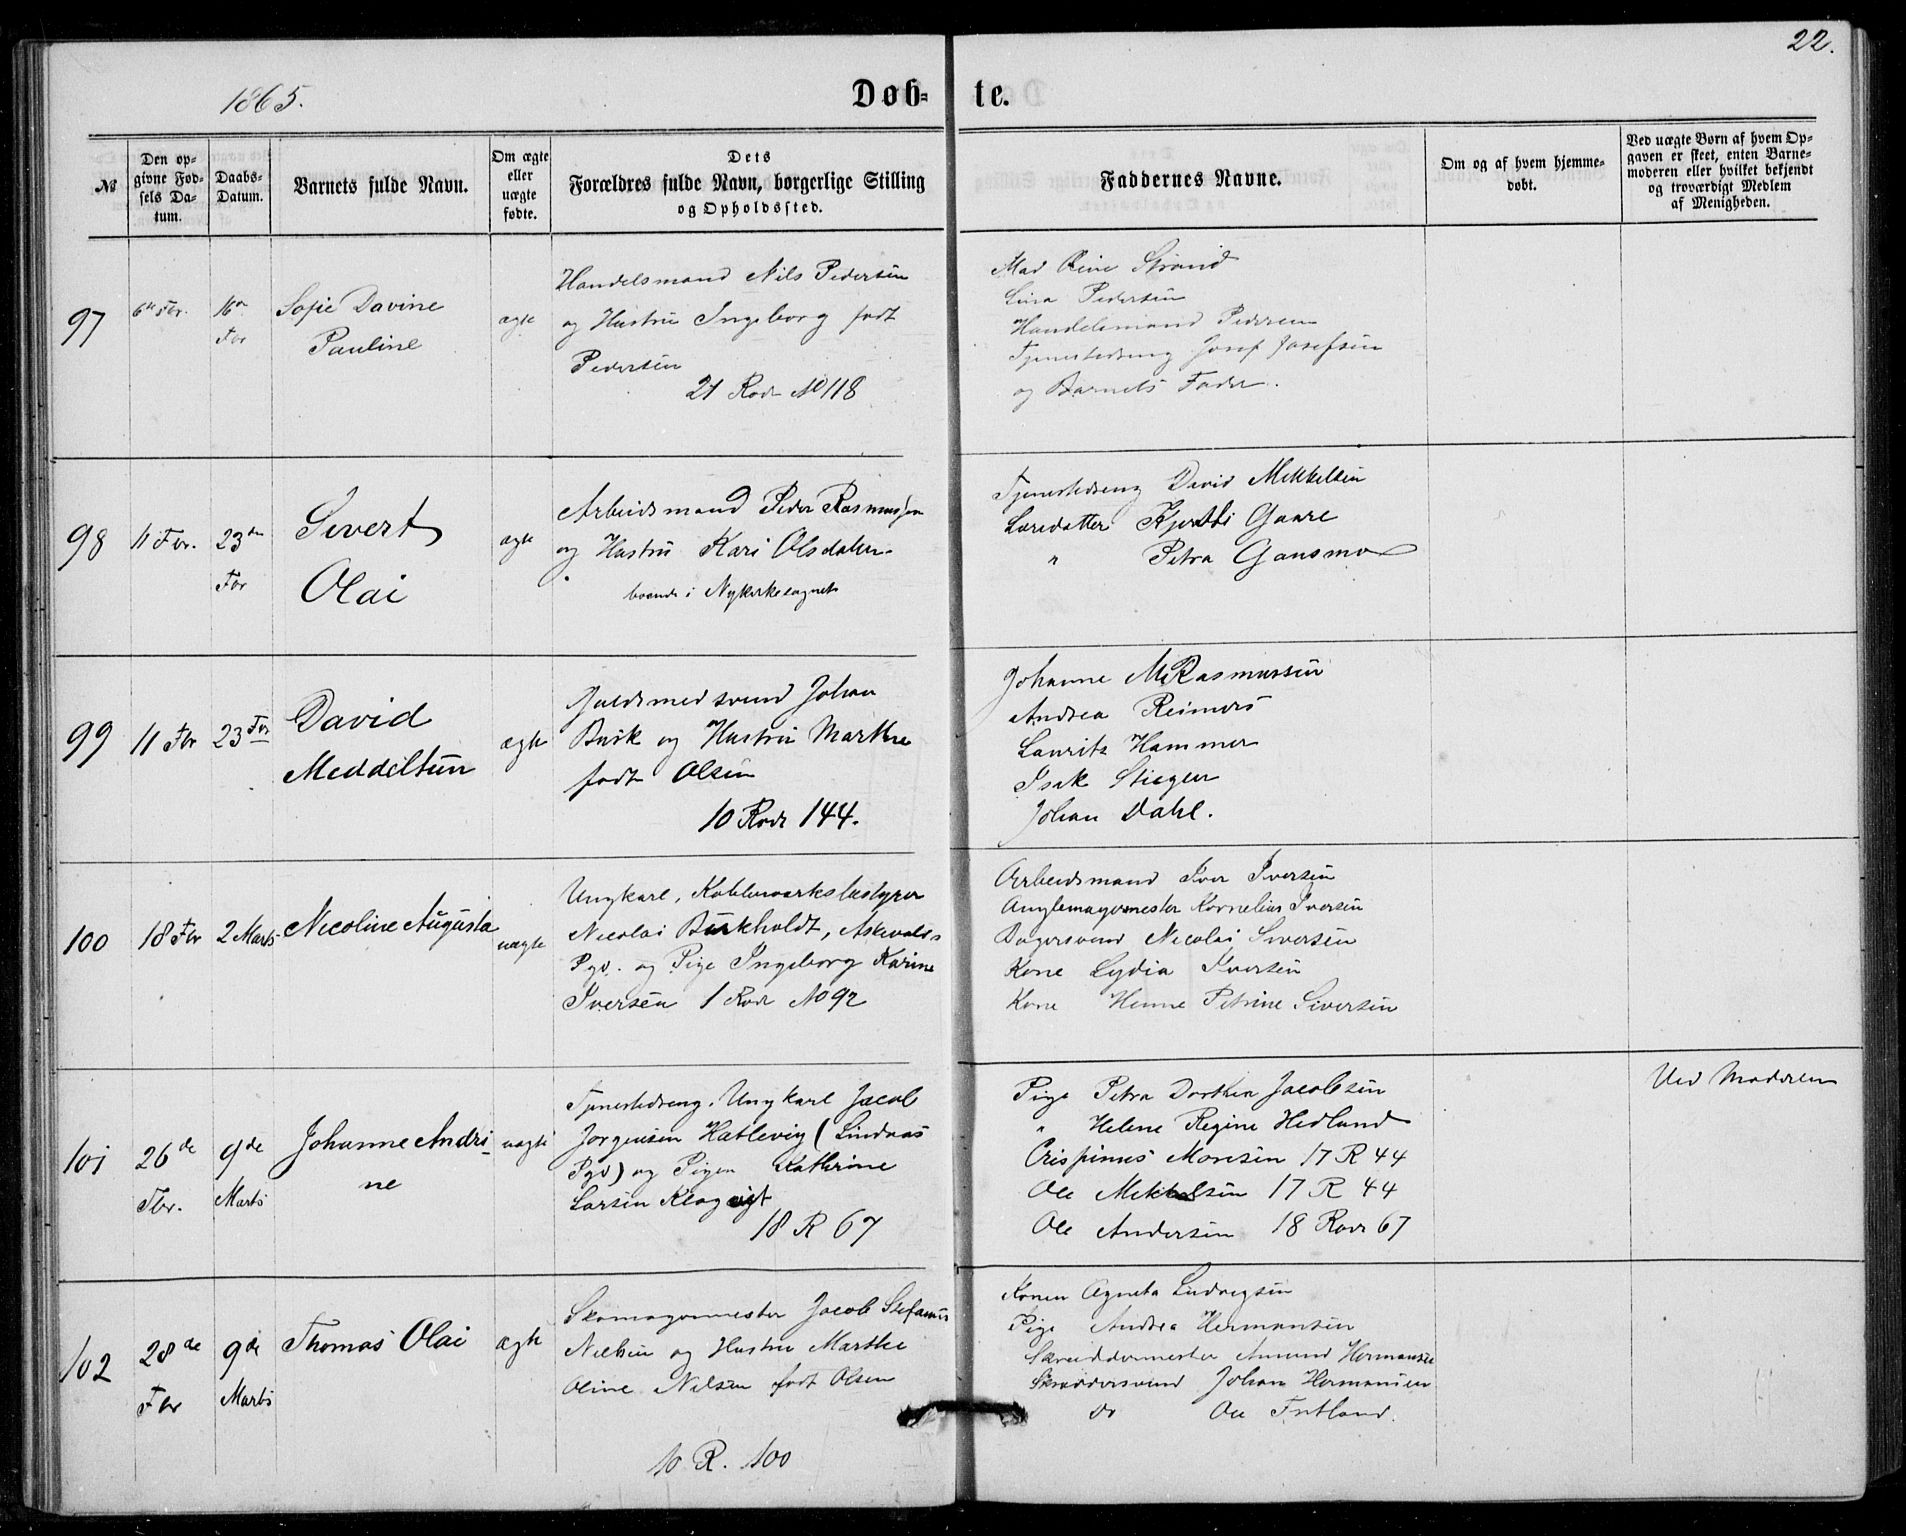 22.
1865.
Døb- te.
№
Den op-
givne Fød-
sels Da-
tum.
Daabs-
Datum.
Barnets fulde Navn.
Om ægte
eller
uægte
fødte.
Dets
Forældres fulde Navn, borgerlige Stilling
og Opholdssted.
Faddernes Navne.
Om og af hvem hjemme-
døbt.
Ved uægte Børn af hvem Op-
gaven er skeet, enten Barne-
moderen eller hvilket bekjendt
og troværdigt Medlem
af Menigheden.
97
6te Fbr.
16de
Fbr
Sofie Davine
Pauline
ægte
Handelsmand Nils Pedersen
og Hustru Ingeborg født
Pedersen
21 Rode No 118
Mad Oline Strand
Lina Pedersen
Handelsmand Pedersen
Tjenestedreng Josef Josefsen
og Barnets Fader.
98
11 Fbr.
23de
Fbr
Sivert
Olai
ægte
Arbeidsmand Peder Rasmussen
og Hustru Kari Olsdatter
boende i Nykirkesognet
Tjenestedreng David Mikkelsen
Læredatter Gaare
" Petra Gausmo
99
11 Fbr
23 Fbr
David
Meddeltun
ægte
Guldsmedsvend Johan
Busk og Hustru Marthe
født Olsen
10 Rode 144.
Johanne M Rasmussen
Andrea Reimers
Laurits Hammer
Isak Stiegler
Johan Dahl.
100
18 Fbr
2 Marts
Nicoline Augusta
uægte
Ungkarl, Kobberværksbestyrer
Nicolai Burkholdt, Askevolds
Pgd. og Pige Ingeborg Karine
Iversen 1 Rode No 92
Arbeidsmand Iver Iversen
Anglemagermester Kornelius Iversen
Bagersvend Nicolai Siversen
Kone Lydia Iversen
Kone Henne Petrine Siversen
101
26de
Fbr.
9de
Marts
Johanne Andri-
ne
uægte
Tjenestedreng, Ungkarl Jacob
Jørgensen Hatlevig (Lindaas
Pgd) og Pigen Kathrine
Larsen
18 R 67
Pige Petra Dorthea Jacobsen
" Helene Regine Hedland
Crispinus Monsen 17 R 44
Ole Mikkelsen 17 R 44
Ole Andersen 18 Rode 67
Ved Moderen
102
28de
Fbr
9de
Marts
Thomas Olai
ægte
Skomagermester Jacob Stefanus
Nielsen og Hustru Marthe
Oline Nilsen født Olsen
10 R. 100
Konen Agneta Ludvigsen
Pige Andrea Hermansen
Skræddermester Amund Hermansen
Skræddersvend Johan Hermansen
do Ole Fretland.